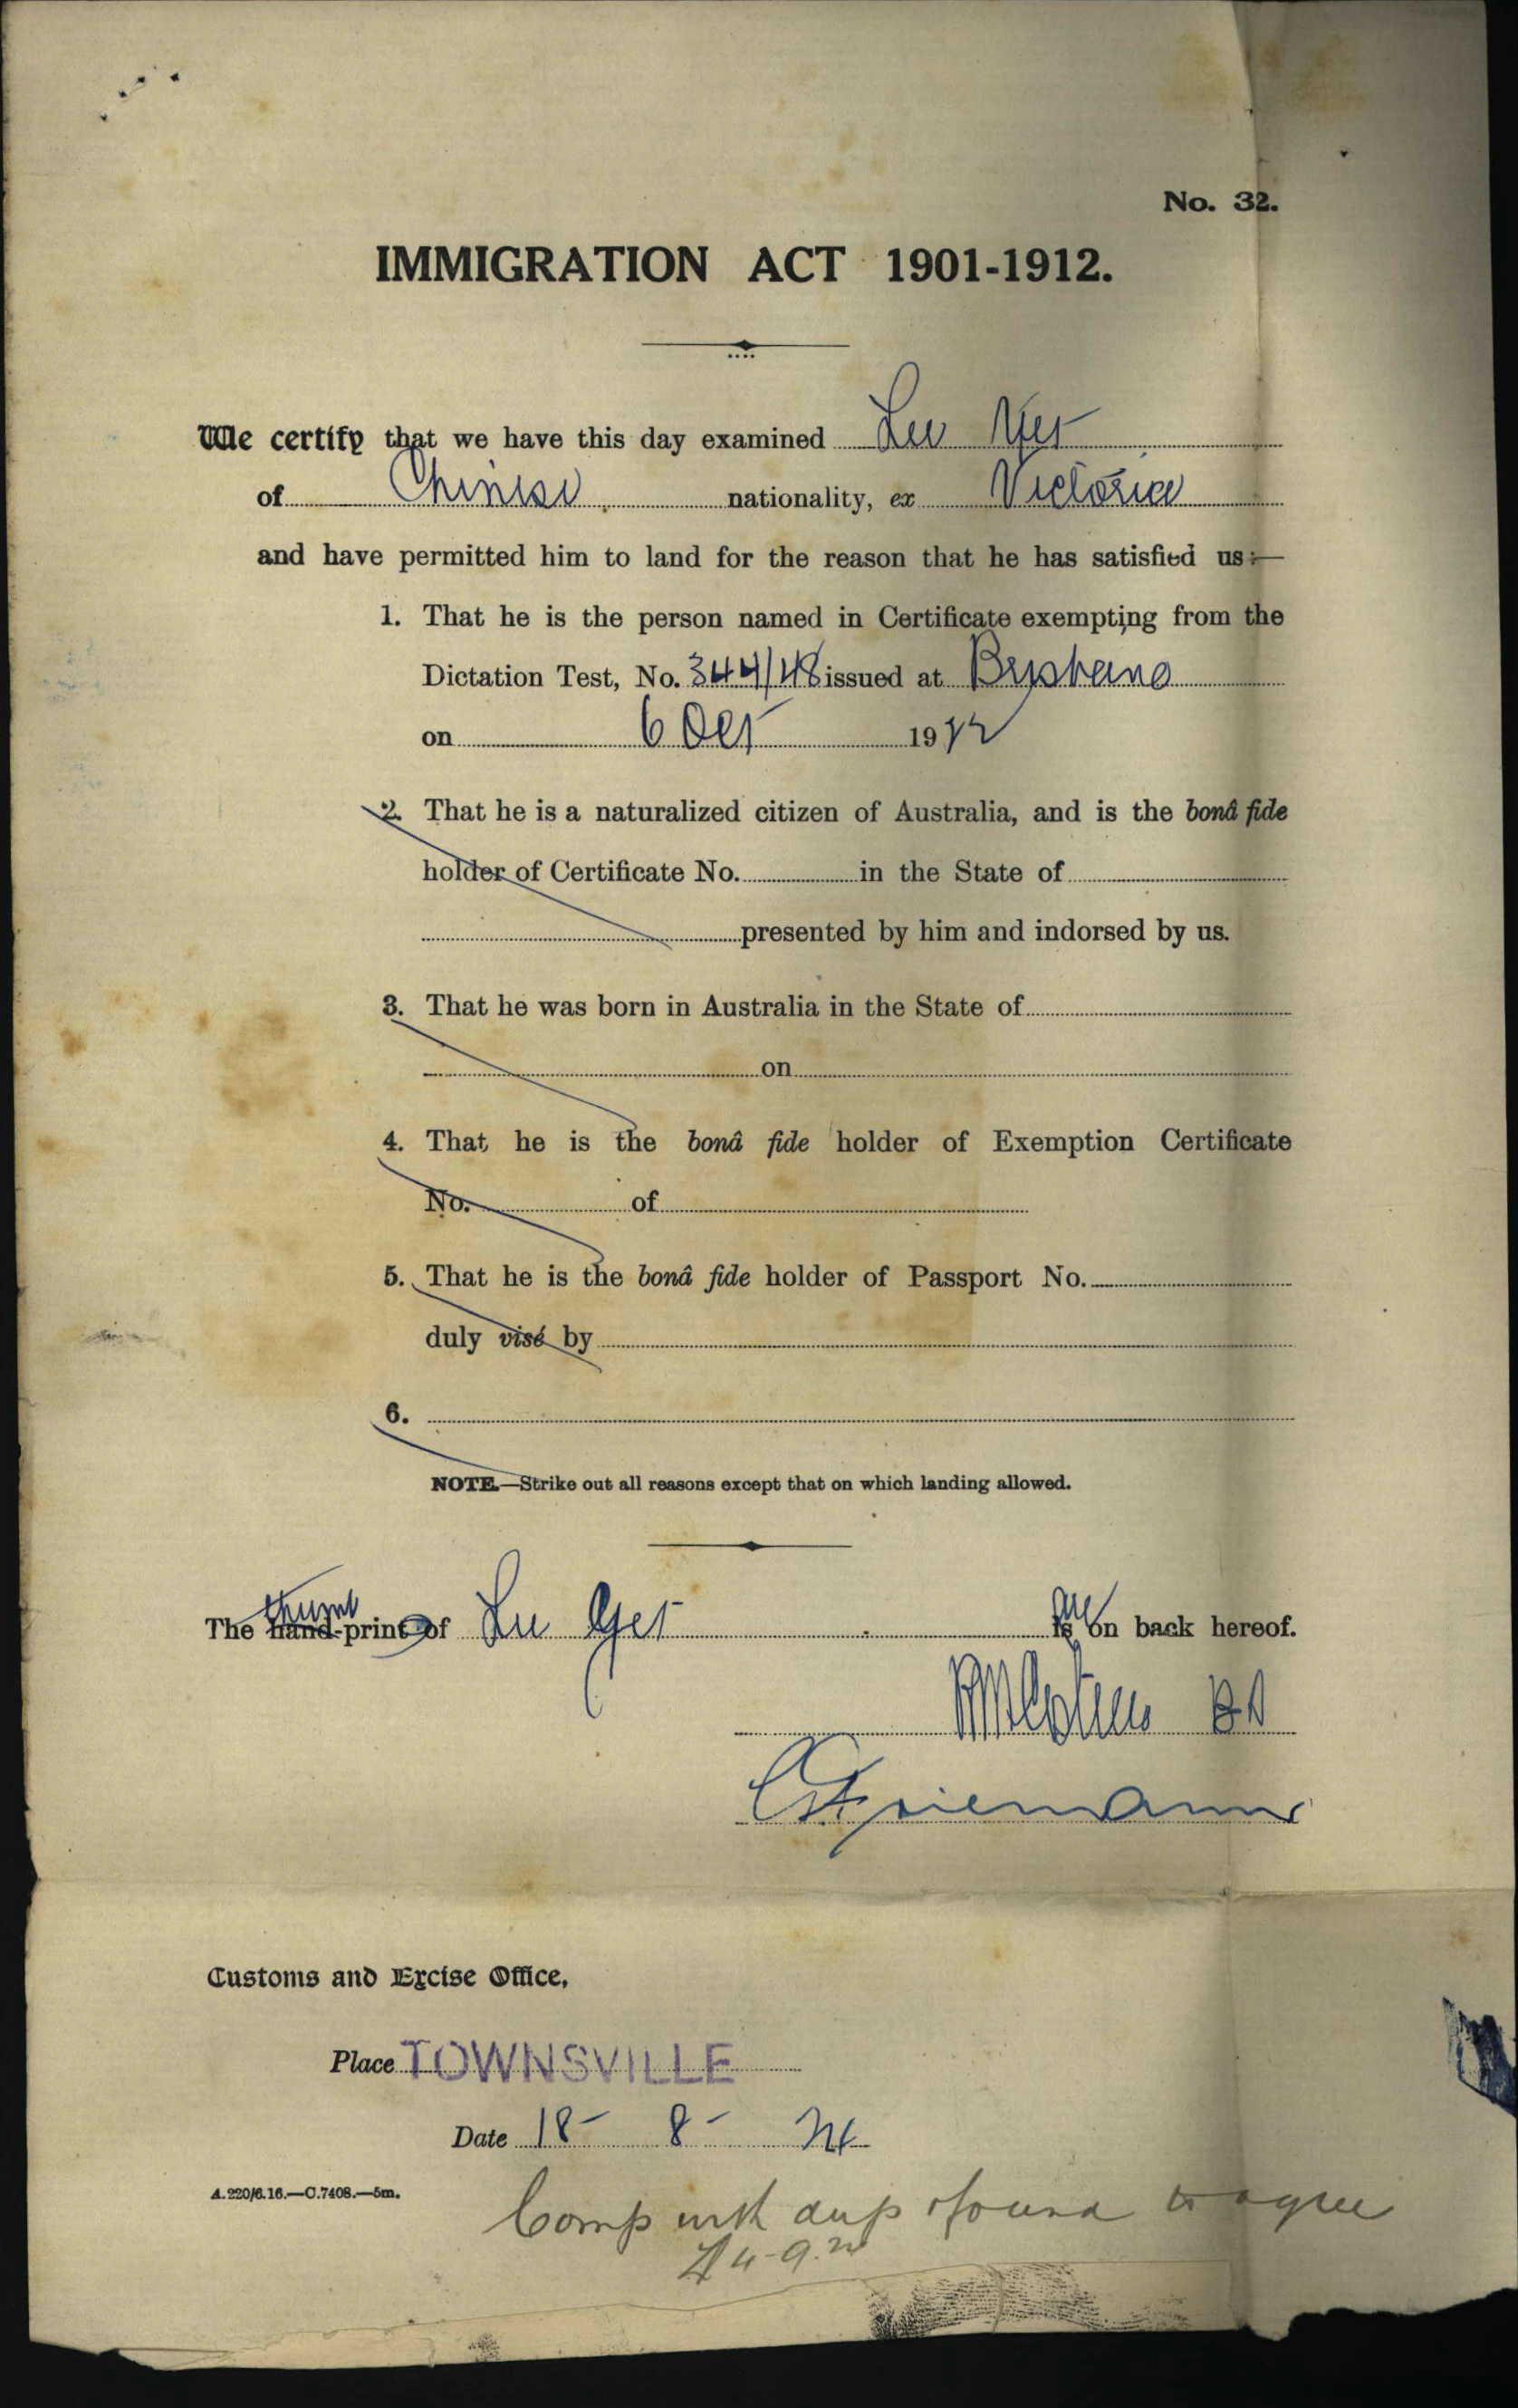 No. 32.
IMMIGRATION ACT 1901-1912.
We certify that we have this day examined Lee Yet
of Chinese nationality, ex Victoria
and have permitted him to land for the reason that he has satisfied us:—
1. That he is the person named in Certificate exempting from the
Dictation Test, No. 344/48 issued at Brisbane
on 6 Oct 19
2. That he is a naturalized citizen of Australia, and is the bonâ fide
holder of Certificate No. in the State of
presented by him and indorsed by us.
3. That he was born in Australia in the State of
on
4. That he is the bonâ fide holder of Exemption Certificate
No. of
5. That he is the bonâ fide holder of Passport No.
duly visé by
6.
NOTE.—Strike out all reasons except that on which landing allowed.
thumb are
The hand-print of Lee Yet is on back hereof.
Customs and Excise Office,
Place TOWNSVILLE
Date 18- 8-
A.220/6.16.—C.7408.—5m.
Comp with dup & found to agree